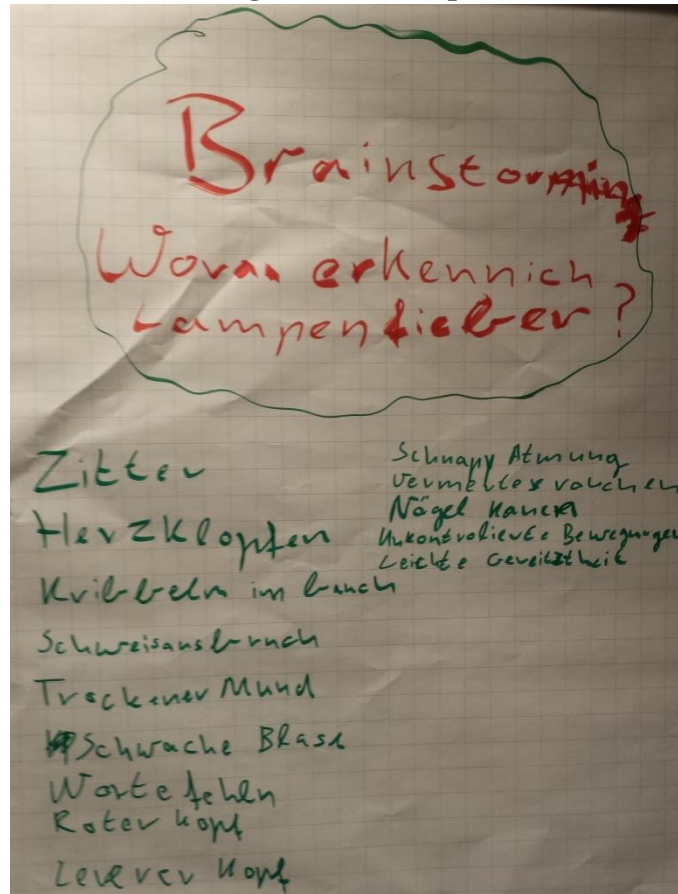 Brainstorming
Woran erkennich
Lampenfieber?
Zitter
Herzklopfen
Kribbeln im bauch
Schweisausbruch
Trockener Mund
Schwache Blase
Worte fehln
Roter Kopf
Leerer Kopf
Schnapp Atmung
Vermertes rauchen
Nägel kauen
Unkontrolierte Bewegungen
Leichte Gereitztheit